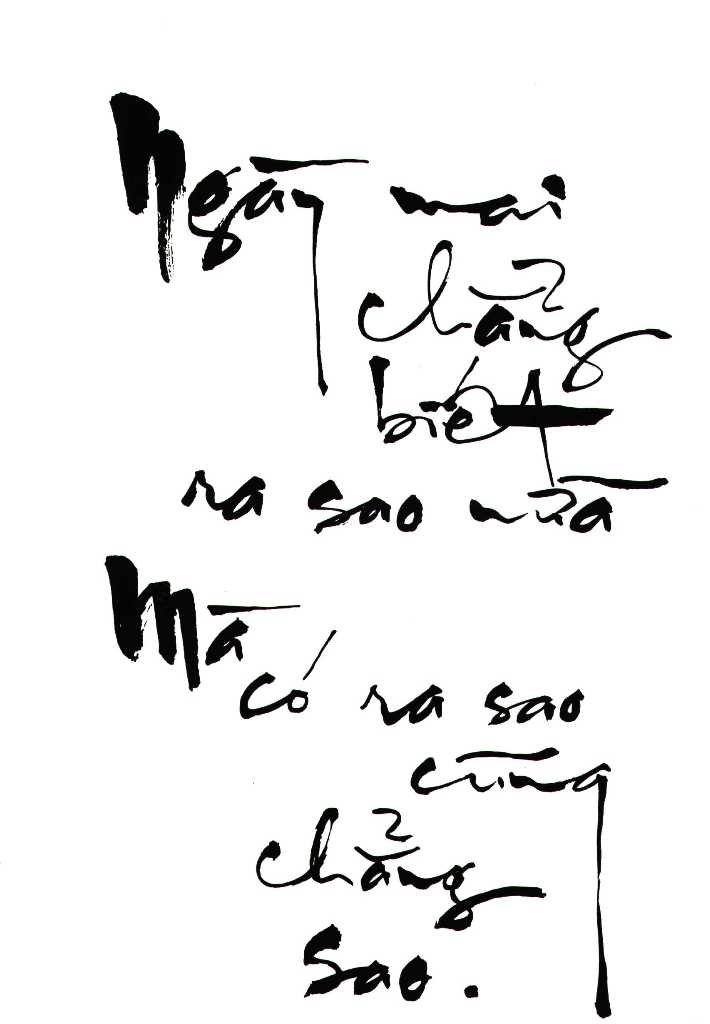 Ngày mai
chẳng
biết
ra sao nữa
Mà
có ra sao
cũng
chẳng
sao.